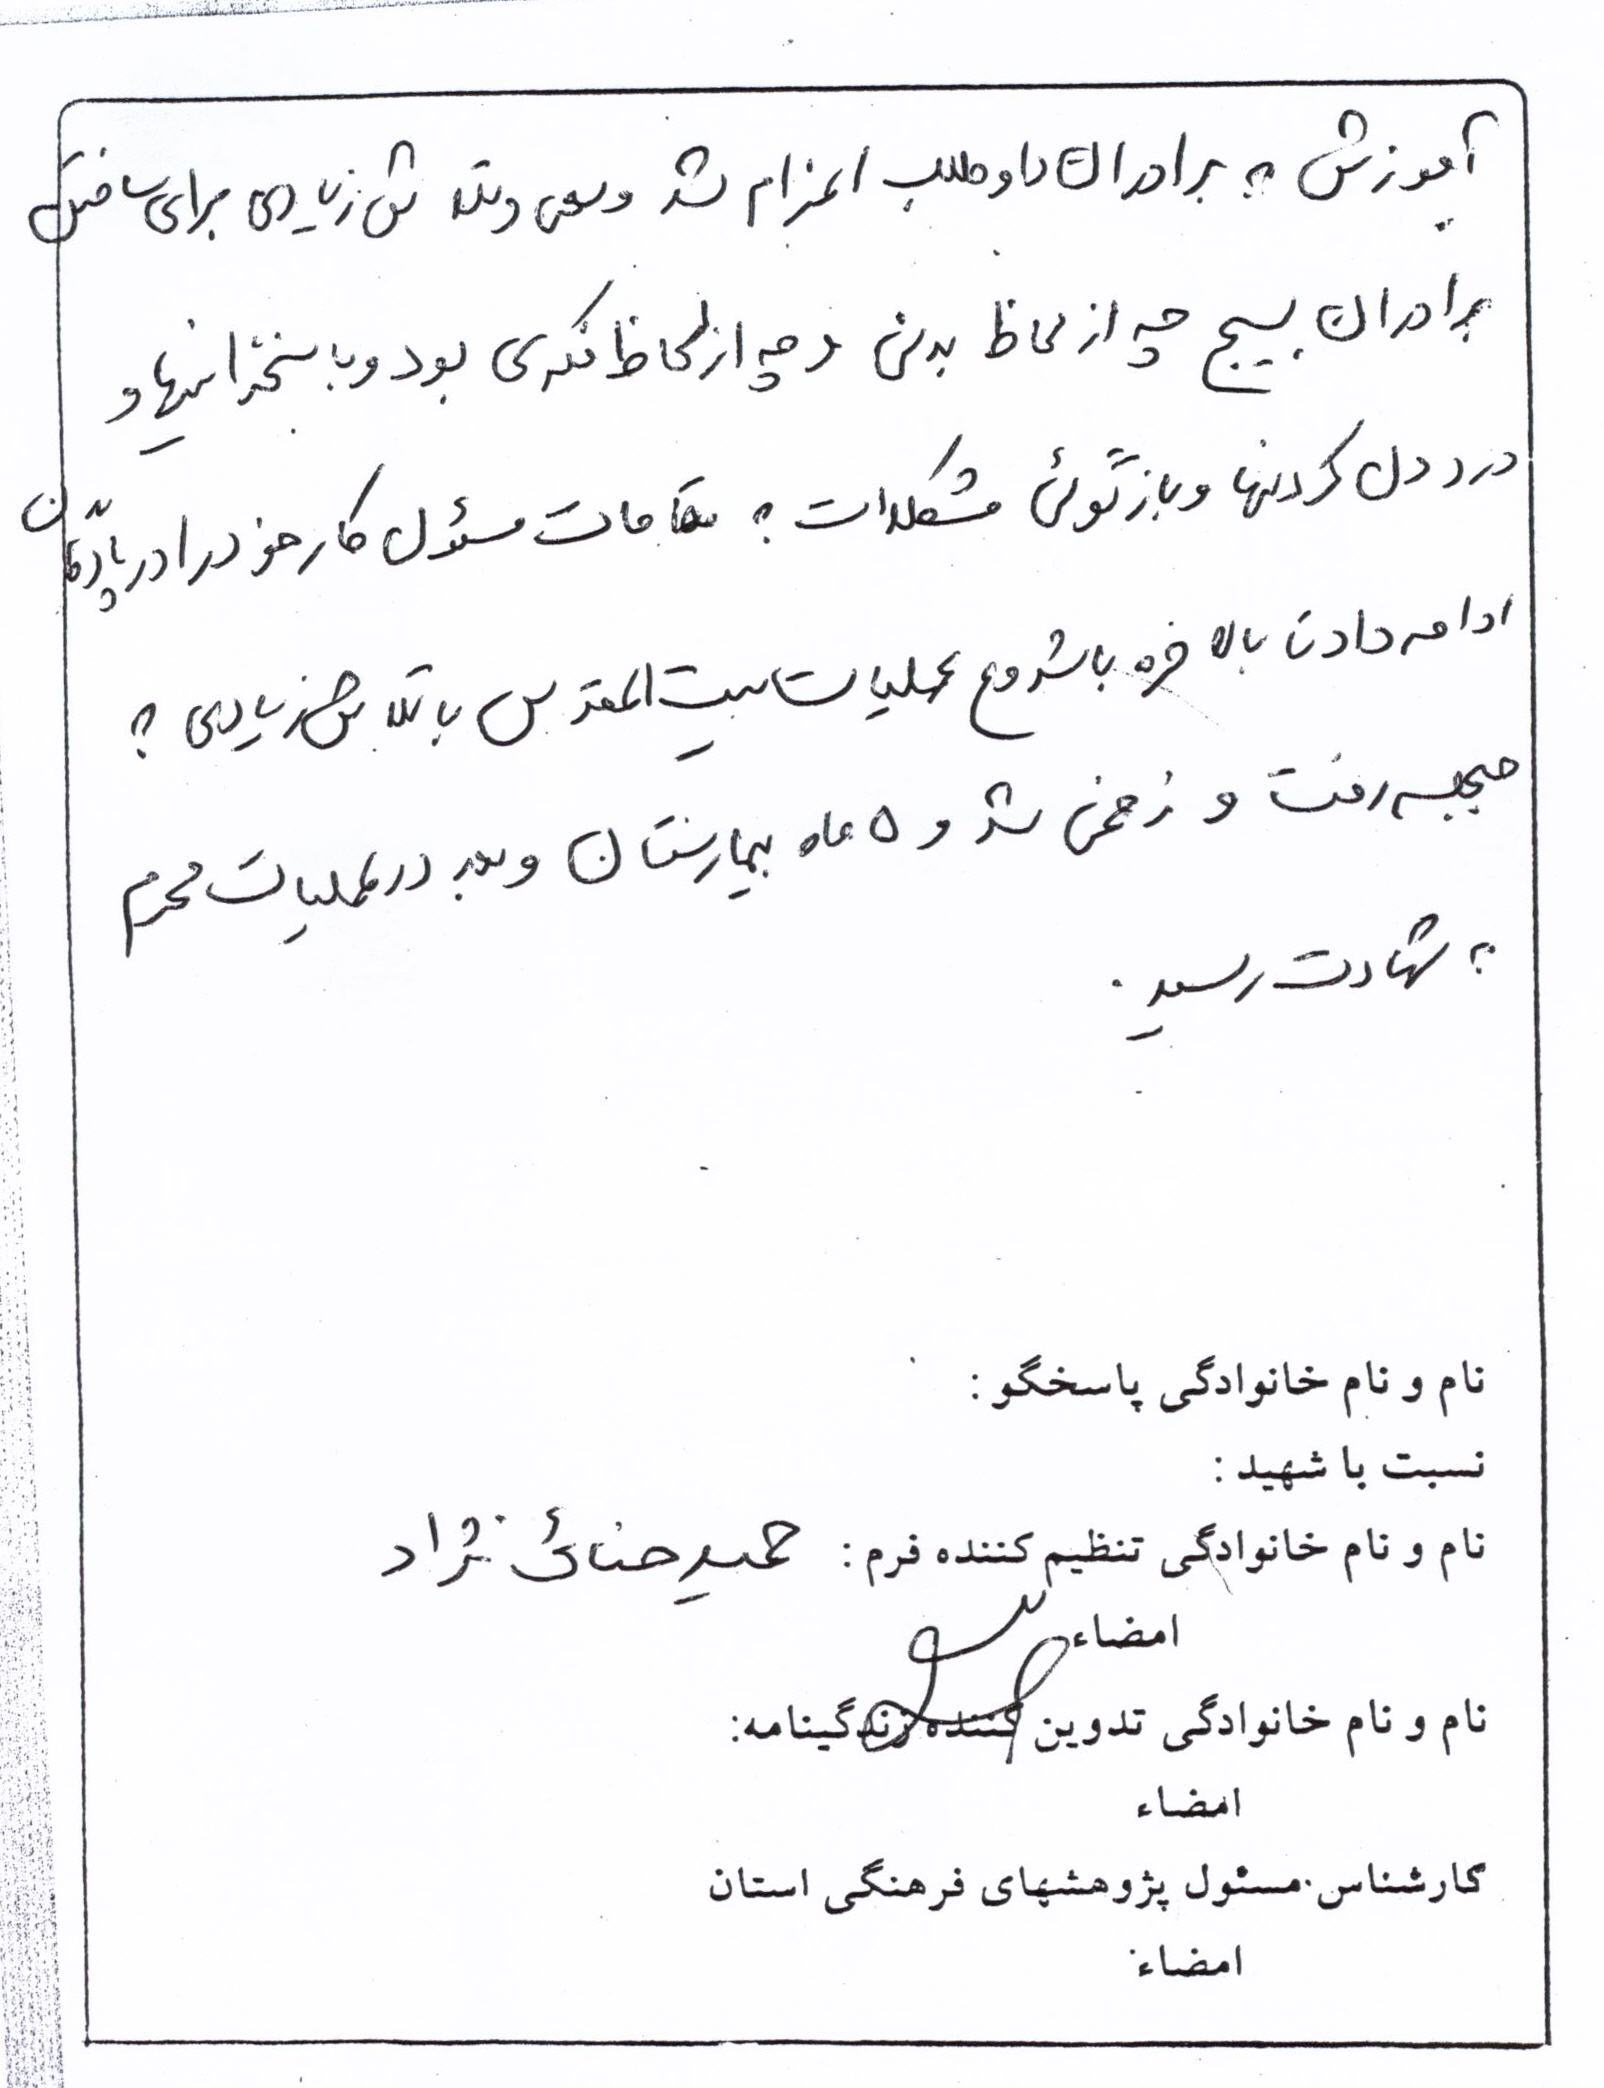 آموزش به برادران داوطلب اعزام شد و سعی و تلاش زیادی برای ساختن
برادران بسیج چه از لحاظ بدنی و چه از لحاظ فکری بود و با سخنرانیها و
درد دل کردنها و بازگوئی مشکلات به مقامات مسئول کار خود را در پادگان
ادامه دادن بالاخره با شروع عملیات بیت المقدس با تلاش زیادی به
جبهه رفت و زخمی شد و ۵ ماه بیمارستان و بعد در عملیات محرم
به شهادت رسید .
نام و نام خانوادگی پاسخگو :
نسبت با شهید :
نام و نام خانوادگی تنظیم کننده فرم : حمید حنائی نژاد
امضاء
نام و نام خانوادگی تدوین کننده زندگینامه:
امضاء
کارشناس مسئول پژوهشهای فرهنگی استان
امضاء